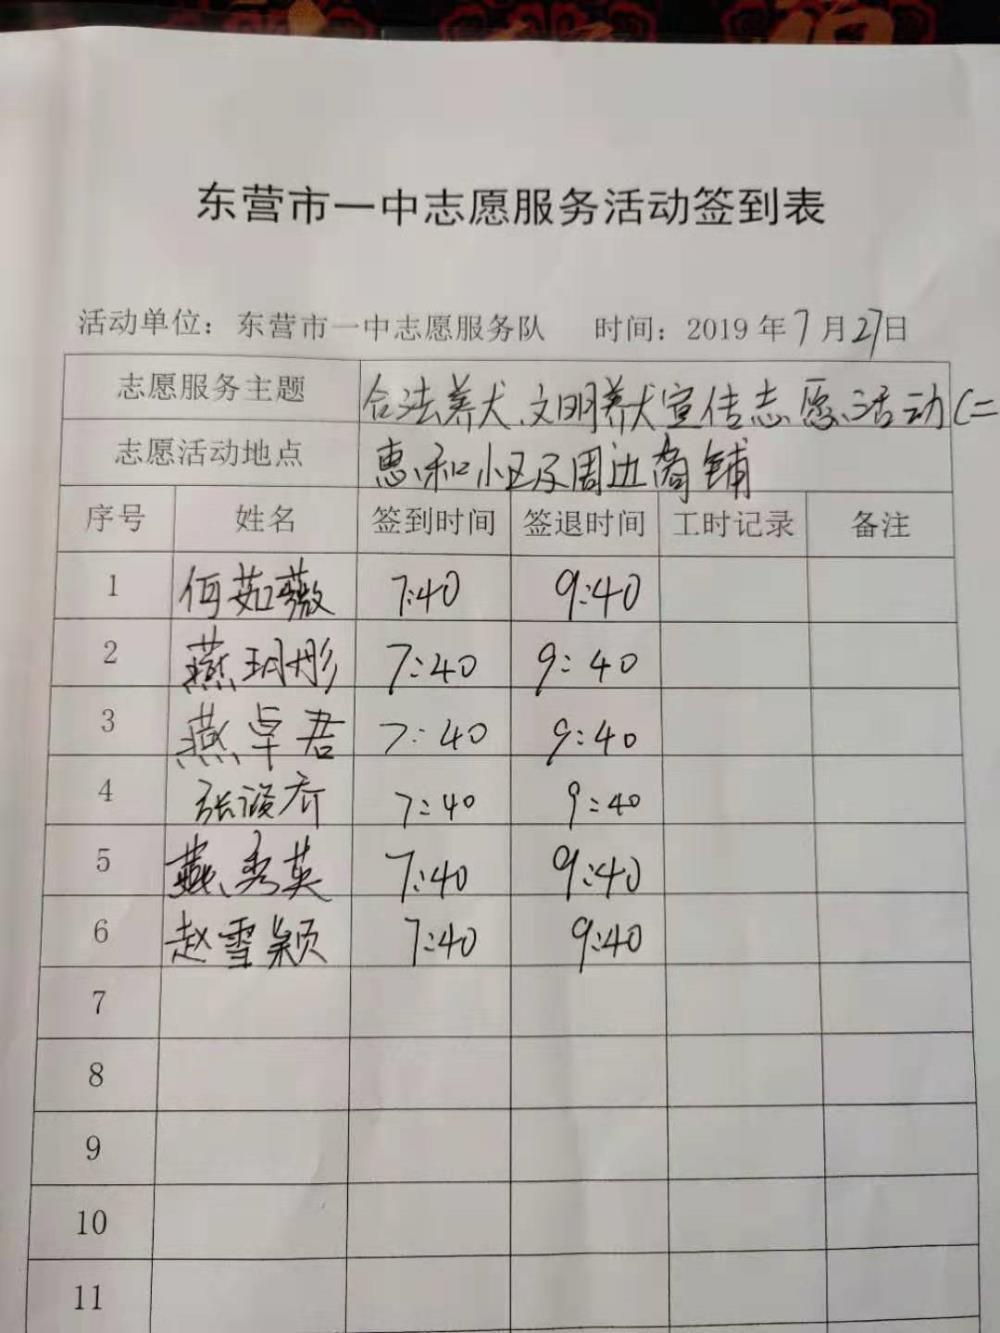 东营市一中志愿服务活动签到表
活动单位：东营市一中志愿服务队 时间：2019年7月27日
志愿服务主题 合法养犬、文明养犬宣传志愿活动(二
志愿活动地点 惠和小区及周边商铺
序号 姓名 签到时间 签退时间 工时记录 备注
1 何茹薇 7:40 9:40
2 燕玥彤 7:40 9:40
3 燕卓君 7:40 9:40
4 张 7:40 9:40
5 燕秀英 7:40 9:40
6 赵雪颖 7:40 9:40
7
8
9
10
11